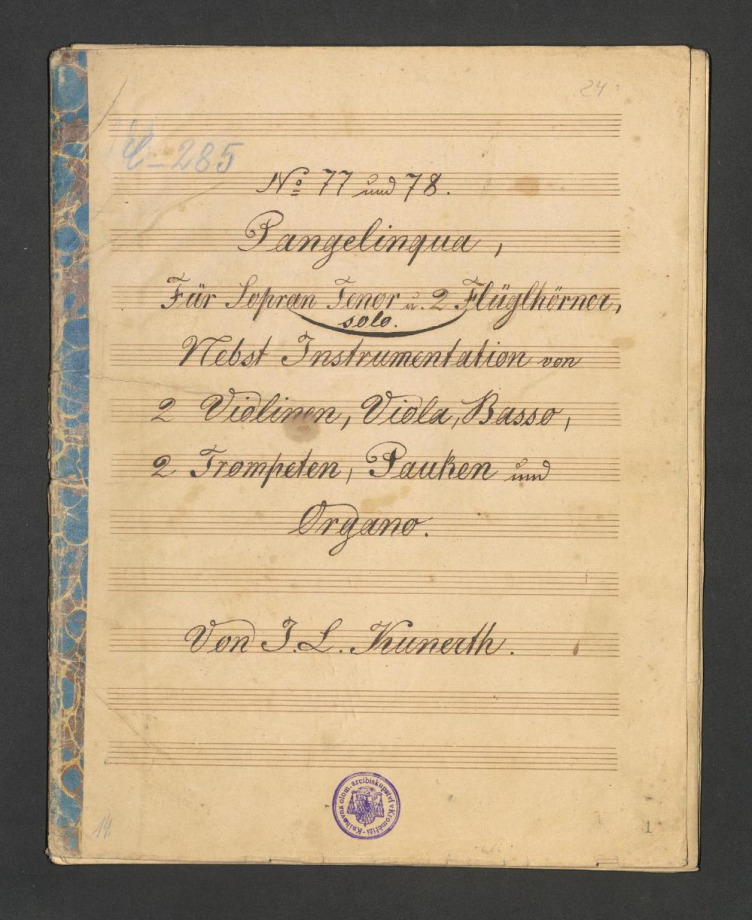 24
C-285
No 77 und 78.
Pangelinqua,
Für Sopran Tenor u. 2 Flüglhörner,
solo.
Nebst Instrumentation von
2 Violinen, Viola, Basso,
2 Trompeten, Pauken und
Organo.
Von J. L. Kunerth.
Knihovna olom. arcibiskupství v Kroměříži
14.
1